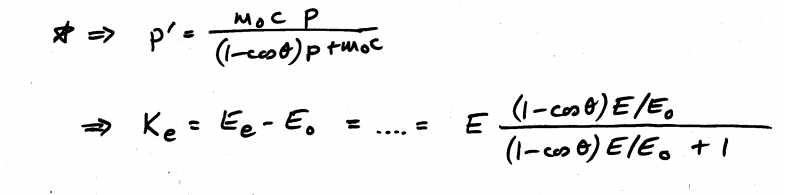 ☆ ⇒ p' = m₀c p / ((1-cosθ)p + m₀c)
⇒ Kₑ = Eₑ - E₀ = .... = E (1-cosθ)E/E₀ / ((1-cosθ)E/E₀ + 1)